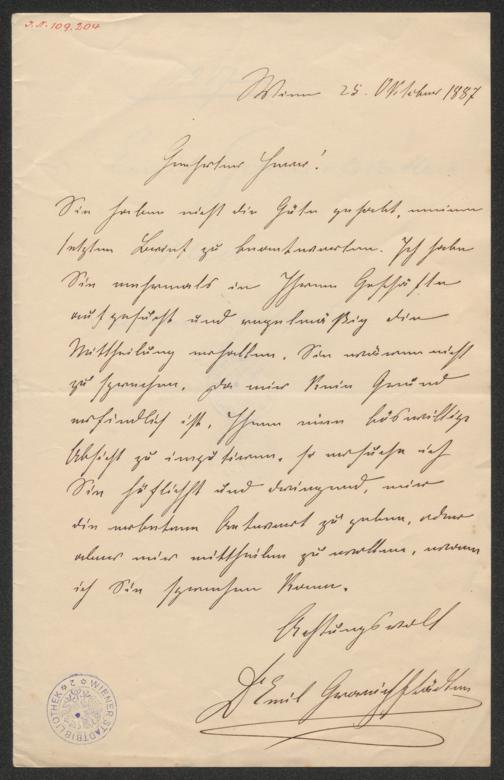 J.N. 109.204
Wien 25. Oktober 1887
Geehrter Herr!
Sie haben nicht die Güte gehabt, meinen
letzten Brief zu beantworten. Ich habe
Sie mehrmals in Ihrem Geschäfte
aufgesucht und regelmäßig die
Mittheilung erhalten, Sie wären nicht
zu sprechen. Da mir kein Grund
erfindlich ist, Ihnen eine böswillige
Absicht zu imputiren, so ersuche ich
Sie höflichst und dringend, mir
die erbetene Antwort zu geben, oder
aber mir mittheilen zu wollen, wann
ich Sie sprechen kann.
Achtungsvoll
Dr Emil Granichstädten
WIENER STADTBIBLIOTHEK